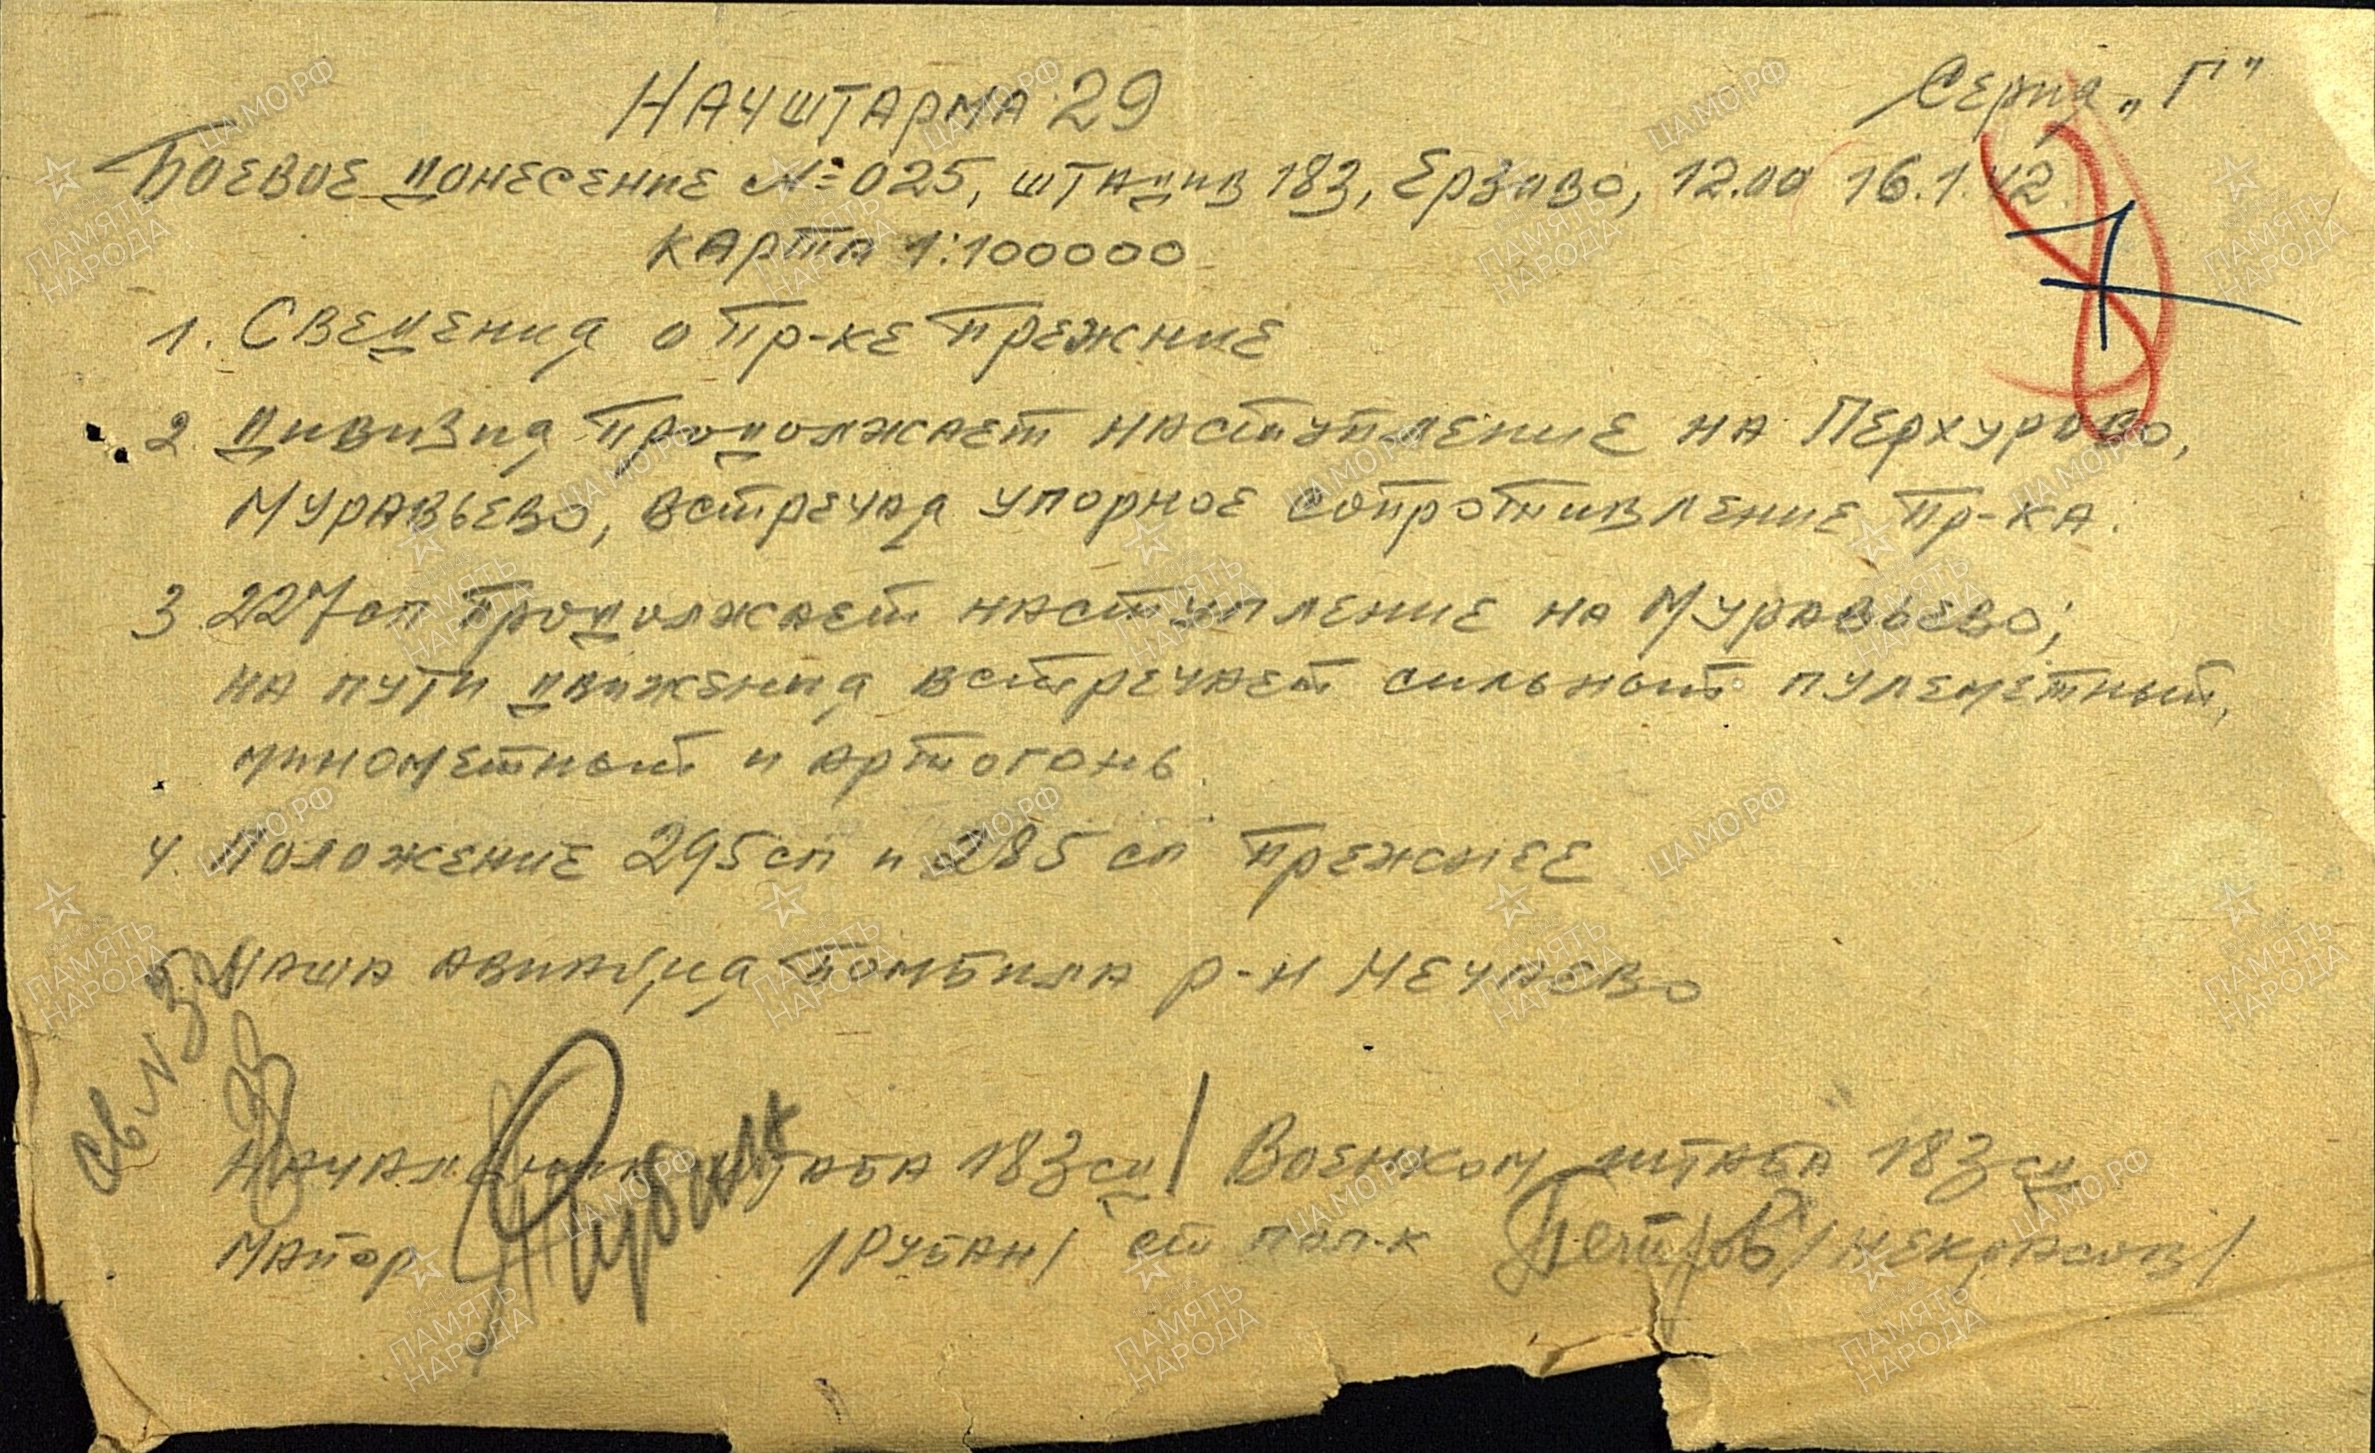 Начштарма 29
Серия „Г"
Боевое донесение № 025, штадив 183, Ерзово, 12.00 16.1.42
карта 1:100000
1. Сведения о пр-ке прежние
2. Дивизия продолжает наступление на Перхурово,
Муравьево, встречая упорное сопротивление пр-ка.
3. 227 сп продолжает наступление на Муравьево;
на пути движения встречает сильный пулеметный,
минометный и артогонь.
4. Положение 295 сп и 285 сп прежнее
5. Наша авиация бомбила р-н Нечаево
Начальник штаба 183 сд / Военком штаба 183 сд
Майор /Рубан/ ст пол-к Петров /Некрасов/